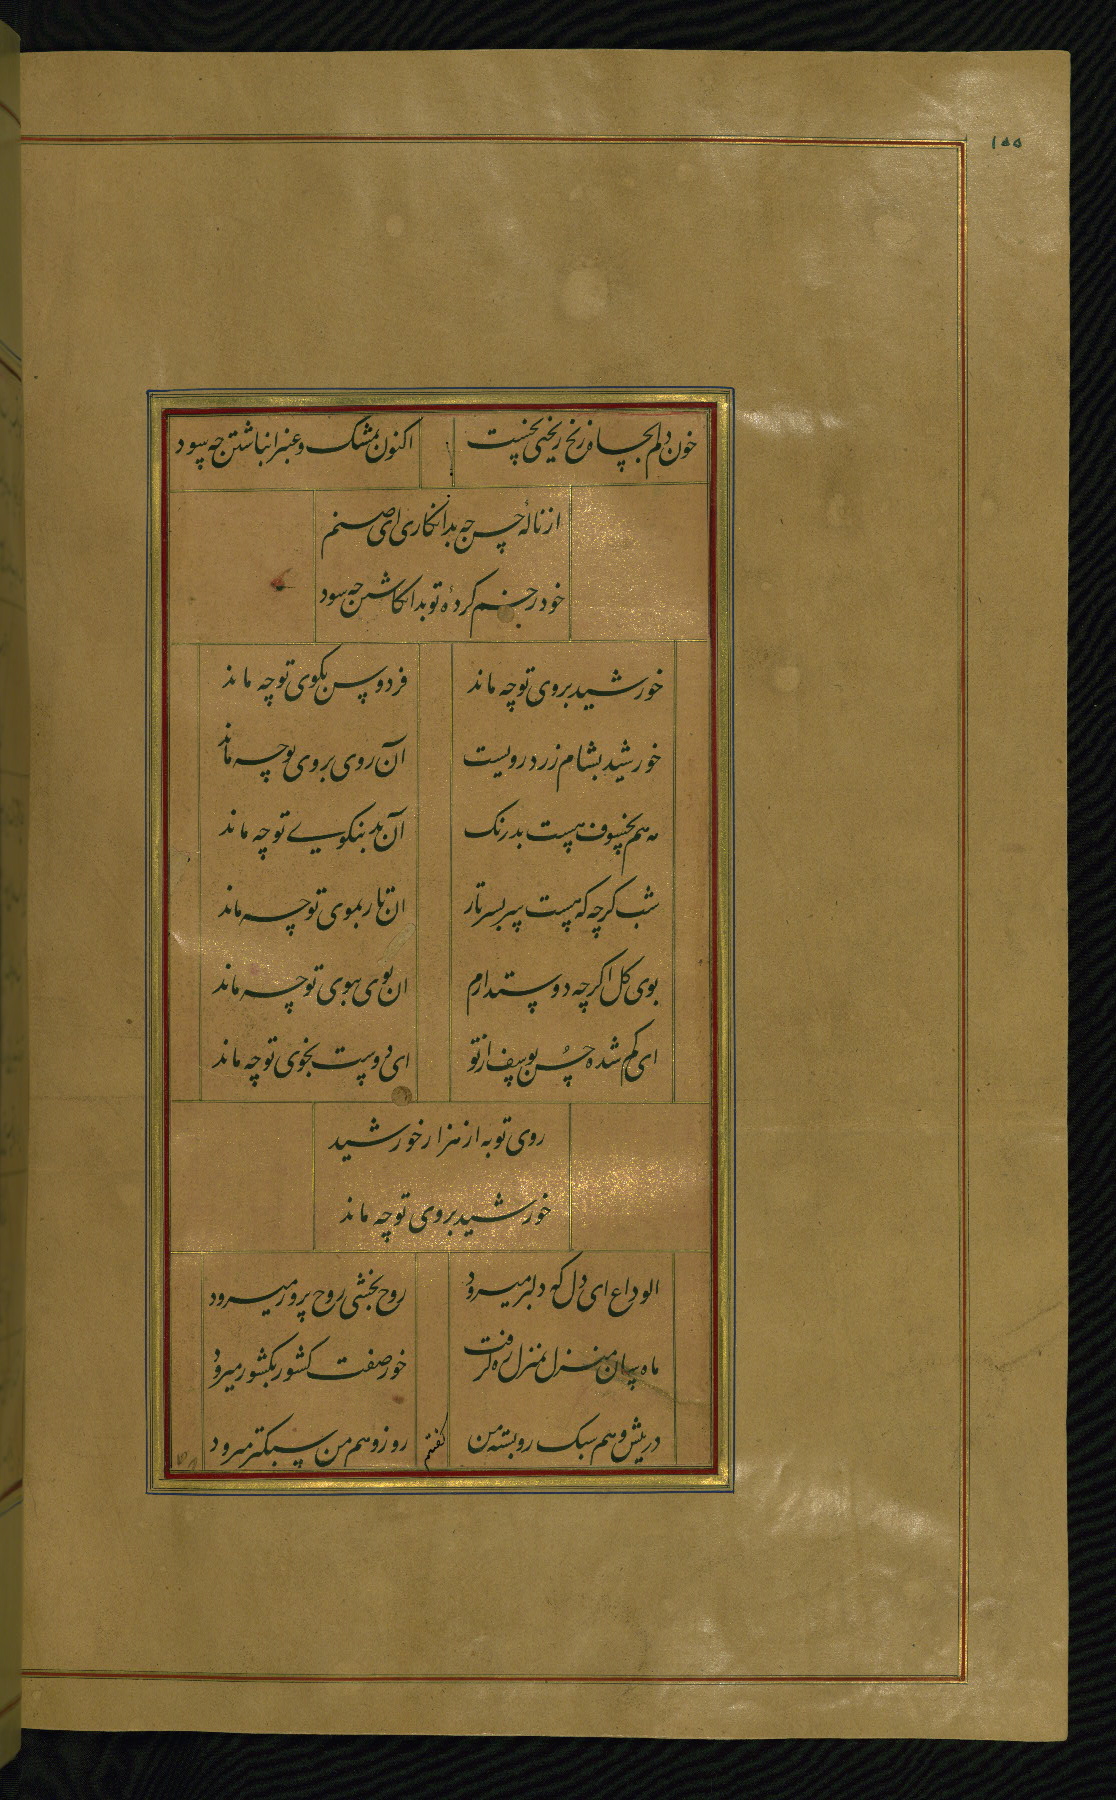 ۱۵۵
خون دلم بچاه زنخ ریختی نخست اکنون بمشک و عنبر انباشتن چه سود
از نالهٔ حسن چه بدانکاری ای صنم
خود رحم کردهٔ تو بدانکاشتن چه سود
خورشید بروی تو چه ماند فردوس بکوی تو چه ماند
خورشید بشام زرد رویست آن روی بروی تو چه ماند
مه هم بخسوف هست بدرنک آن بد بنکویی تو چه ماند
شب کرچه که هست سر بسر تار ان تار بموی تو چه ماند
بوی کل اکرچه دوست دارم ان بوی ببوی تو چه ماند
ای کم شده حسن یوسف از تو ای دوست بخوی تو چه ماند
روی تو به از هزار خورشید
خورشید بروی تو چه ماند
الوداع ای دل که دلبر میرود روح بخشی روح پرور میرود
ماه سان منزل بمنزل ره کرفت خور صفت کشور بکشور میرود
در پیش وهم سبک رو بسته من روز و هم من سبکتر میرود
کفتم